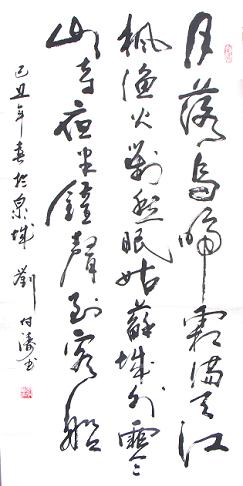 月落烏啼霜滿天江
楓漁火對愁眠姑蘇城外寒
山寺夜半鐘聲到客船
己丑年春於泉城 劉付濤书